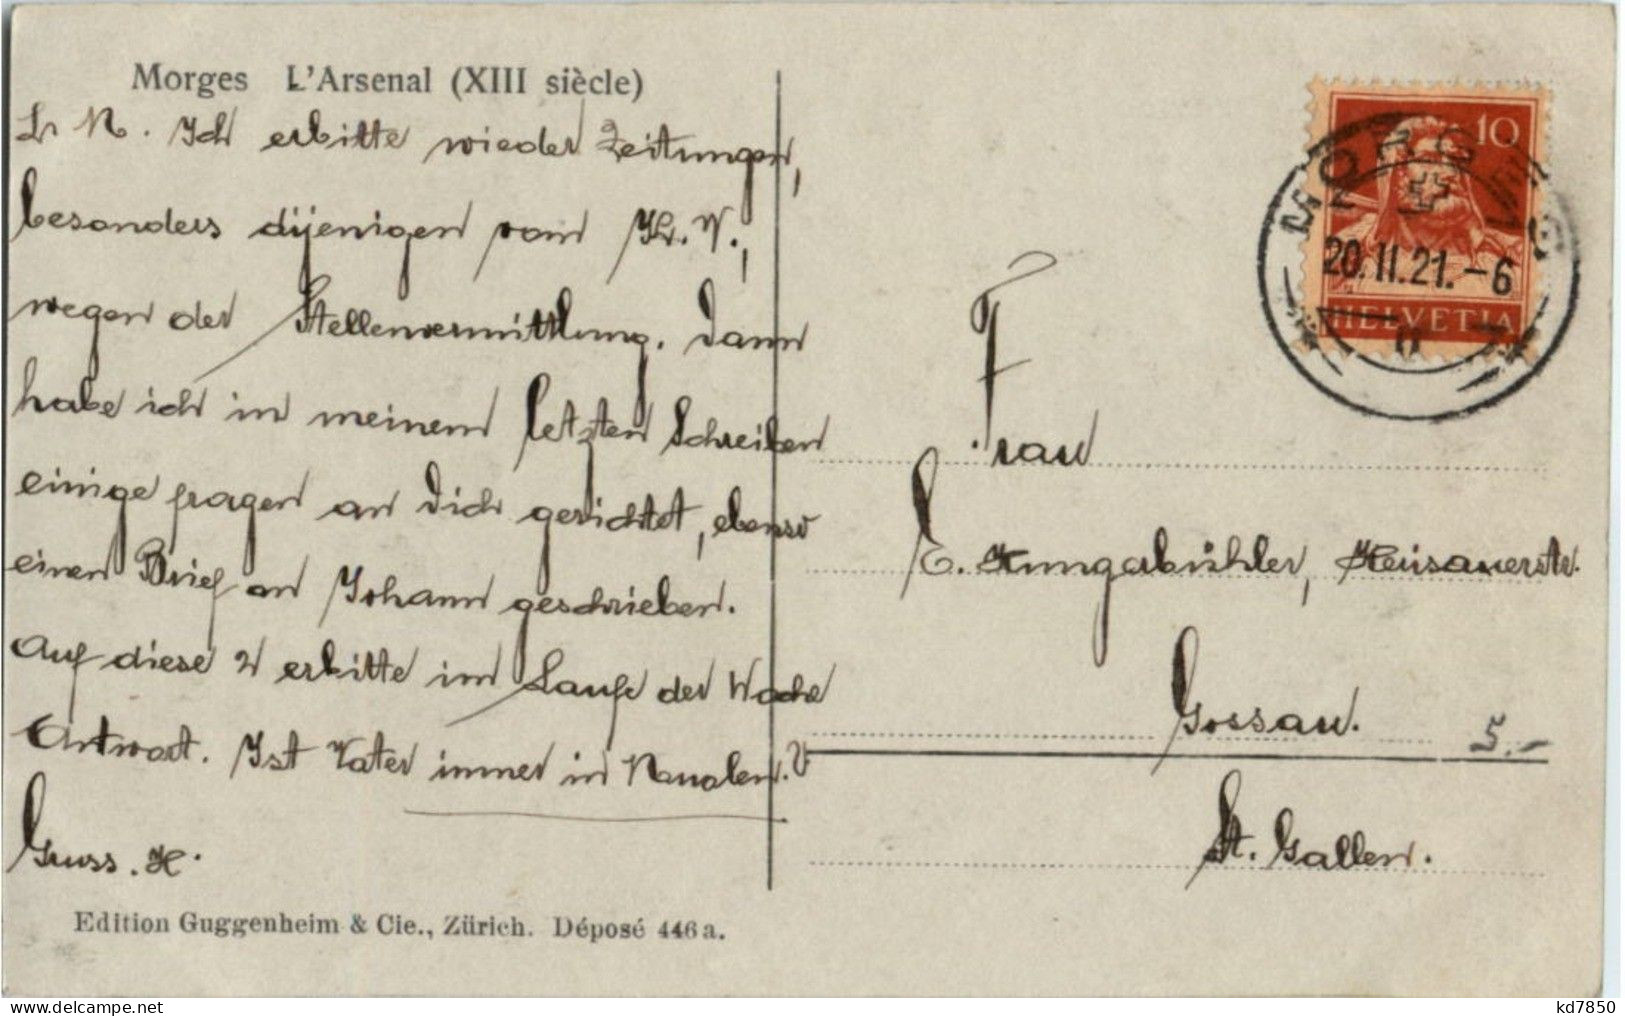 Morges L'Arsenal (XIII siècle)
L. N. Ich erbitte wieder Zeitungen,
besonders dijenigen vom K. V.,
wegen der Stellenvermittlung. Dann
habe ich in meinem letzten Schreiben
einige fragen an Dich gerichtet, ebenso
einen Brief an Johann geschrieben.
Auf diese 2 erbitte im Laufe der Woche
Antwort. Ist Vater immer in
Gruss. H.
Edition Guggenheim & Cie., Zürich. Déposé 446 a.
10
MORGES
20.II.21.-6
HELVETIA
F
Frau
E. Hungerbühler, Herisauerstr.
Gossau.
5.-
St. Gallen.
kd7850